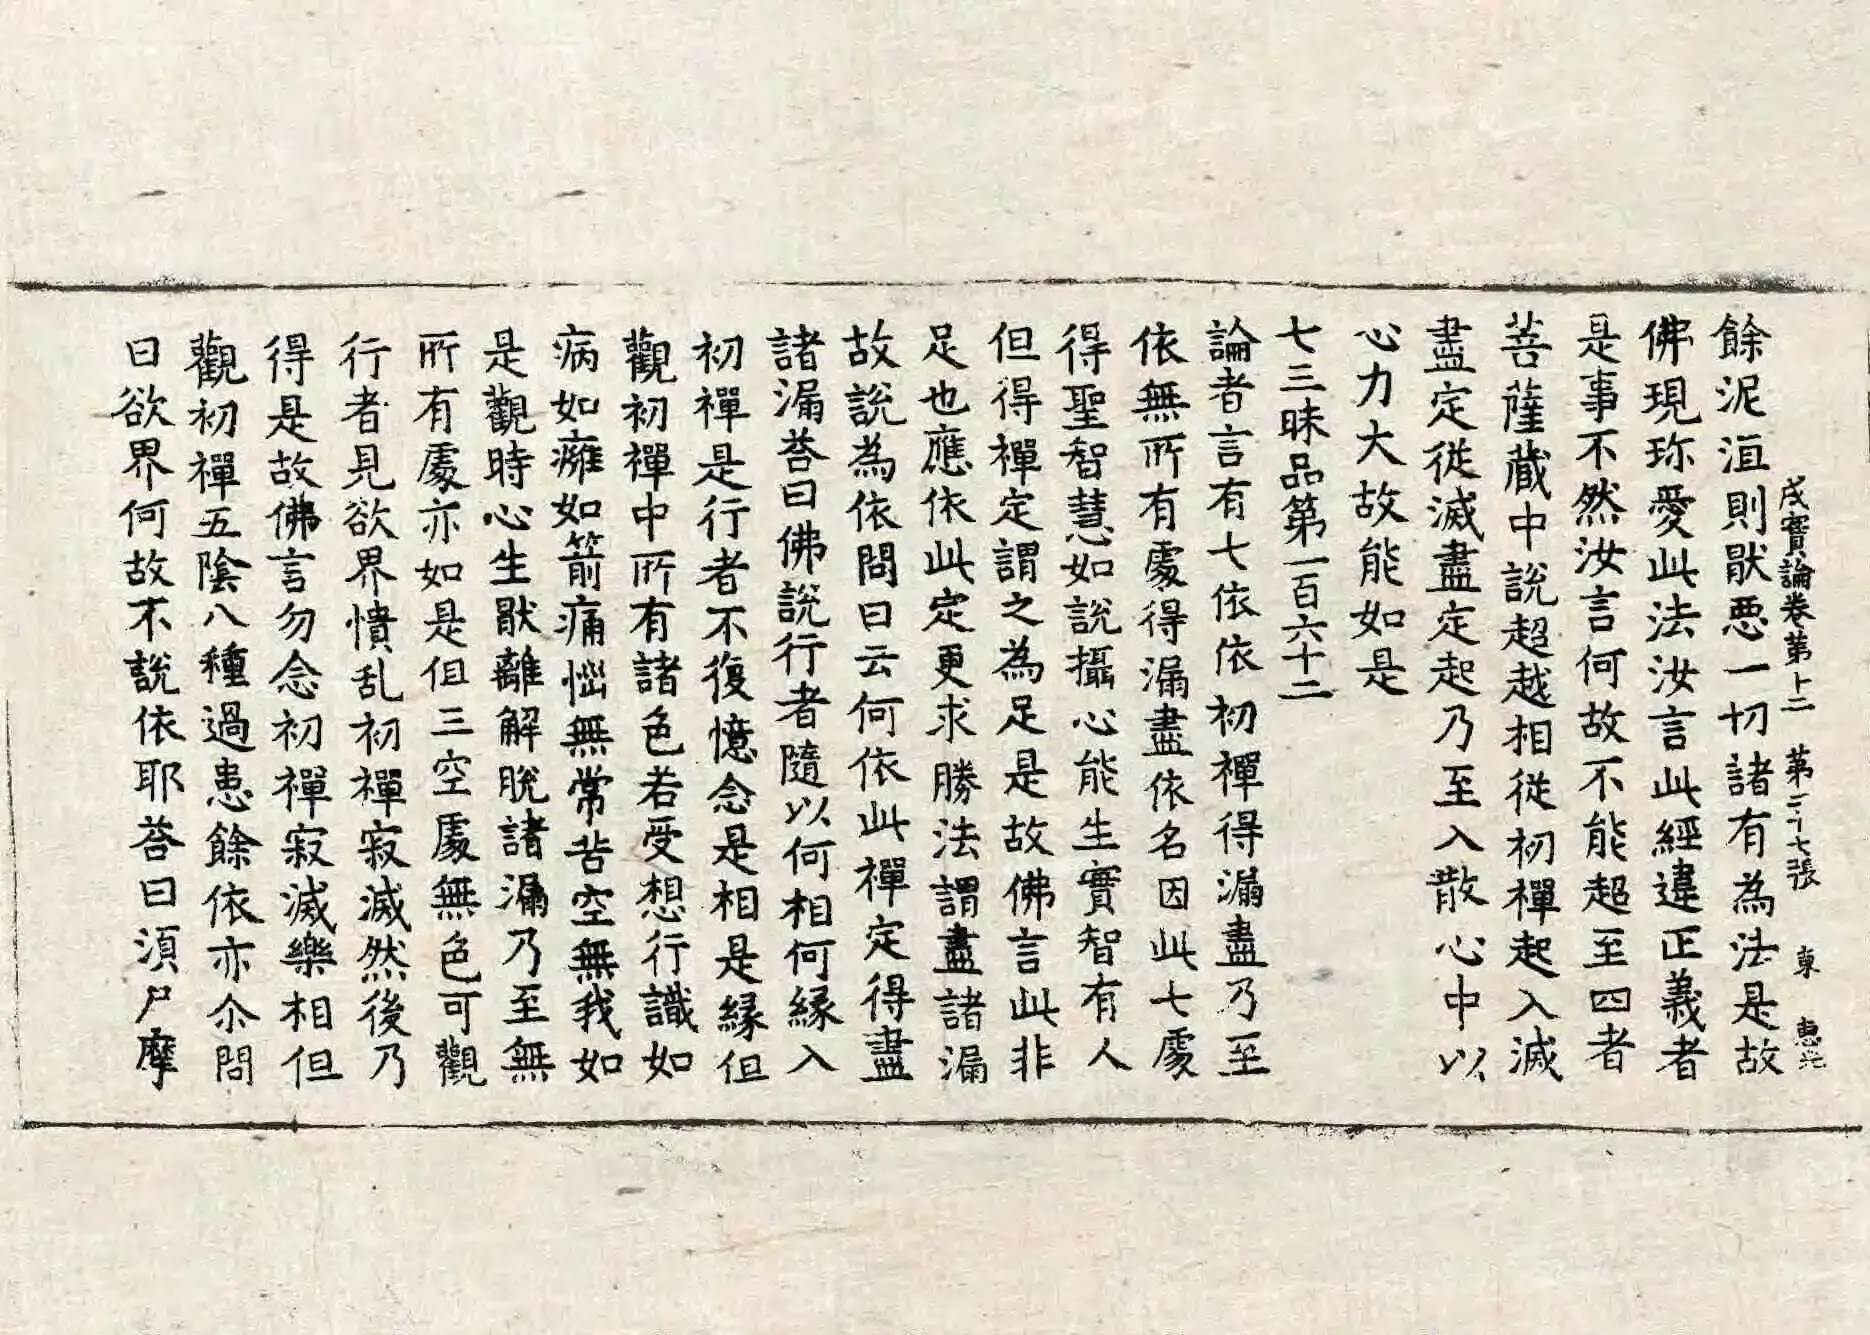 成實論卷第十二 第二十七張 東 惠光
餘泥洹則猒悪一切諸有為法是故
佛現珎愛此法汝言此經違正義者
是事不然汝言何故不能超至四者
菩薩蔵中說超越相從初禪起入滅
盡定從滅盡定起乃至入散心中以
心力大故能如是
七三昧品第一百六十二
論者言有七依依初禪得漏盡乃至
依無所有處得漏盡依名因此七處
得聖智慧如說攝心能生實智有人
但得禪定謂之為足是故佛言此非
足也應依此定更求勝法謂盡諸漏
故說為依問曰云何依此禪定得盡
諸漏荅曰佛說行者隨以何相何縁入
初禪是行者不復憶念是相是縁但
觀初禪中所有諸色若受想行識如
病如癰如箭痛惱無常苦空無我如
是觀時心生猒離解脫諸漏乃至無
所有處亦如是但三空處無色可觀
行者見欲界憒乱初禪寂滅然後乃
得是故佛言勿念初禪寂滅樂相但
觀初禪五陰八種過患餘依亦尒問
曰欲界何故不說依耶荅曰湏尸摩